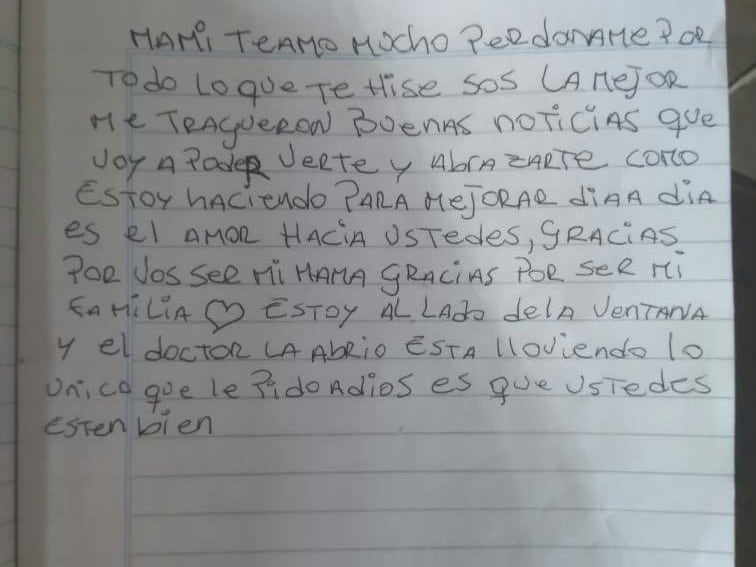 MAMi TE AMO MUCHO PERdONAME POR
TOdO LO que TE HISE SOS LA MEJOR
ME TRAGUERON BUENAS NOTICIAS que
VOY A POdER VERTE y ABRAZARTE COMO
ESTOY HACiENdO PARA MEJORAR diA A diA
es el AMOR HACIA USTEdES, GRACiAS
POR VOS SER Mi MAMA GRACIAS POR SER Mi
FAMiLiA ♡ ESTOY AL LAdO de lA VENTANA
y el dOCTOR LA ABRiO ESTA llOViENdO lO
UNiCO que le PidO A diOS es que USTEdES
ESTEN biEN